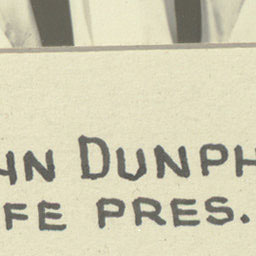 HN DUNPH
FE PRES.